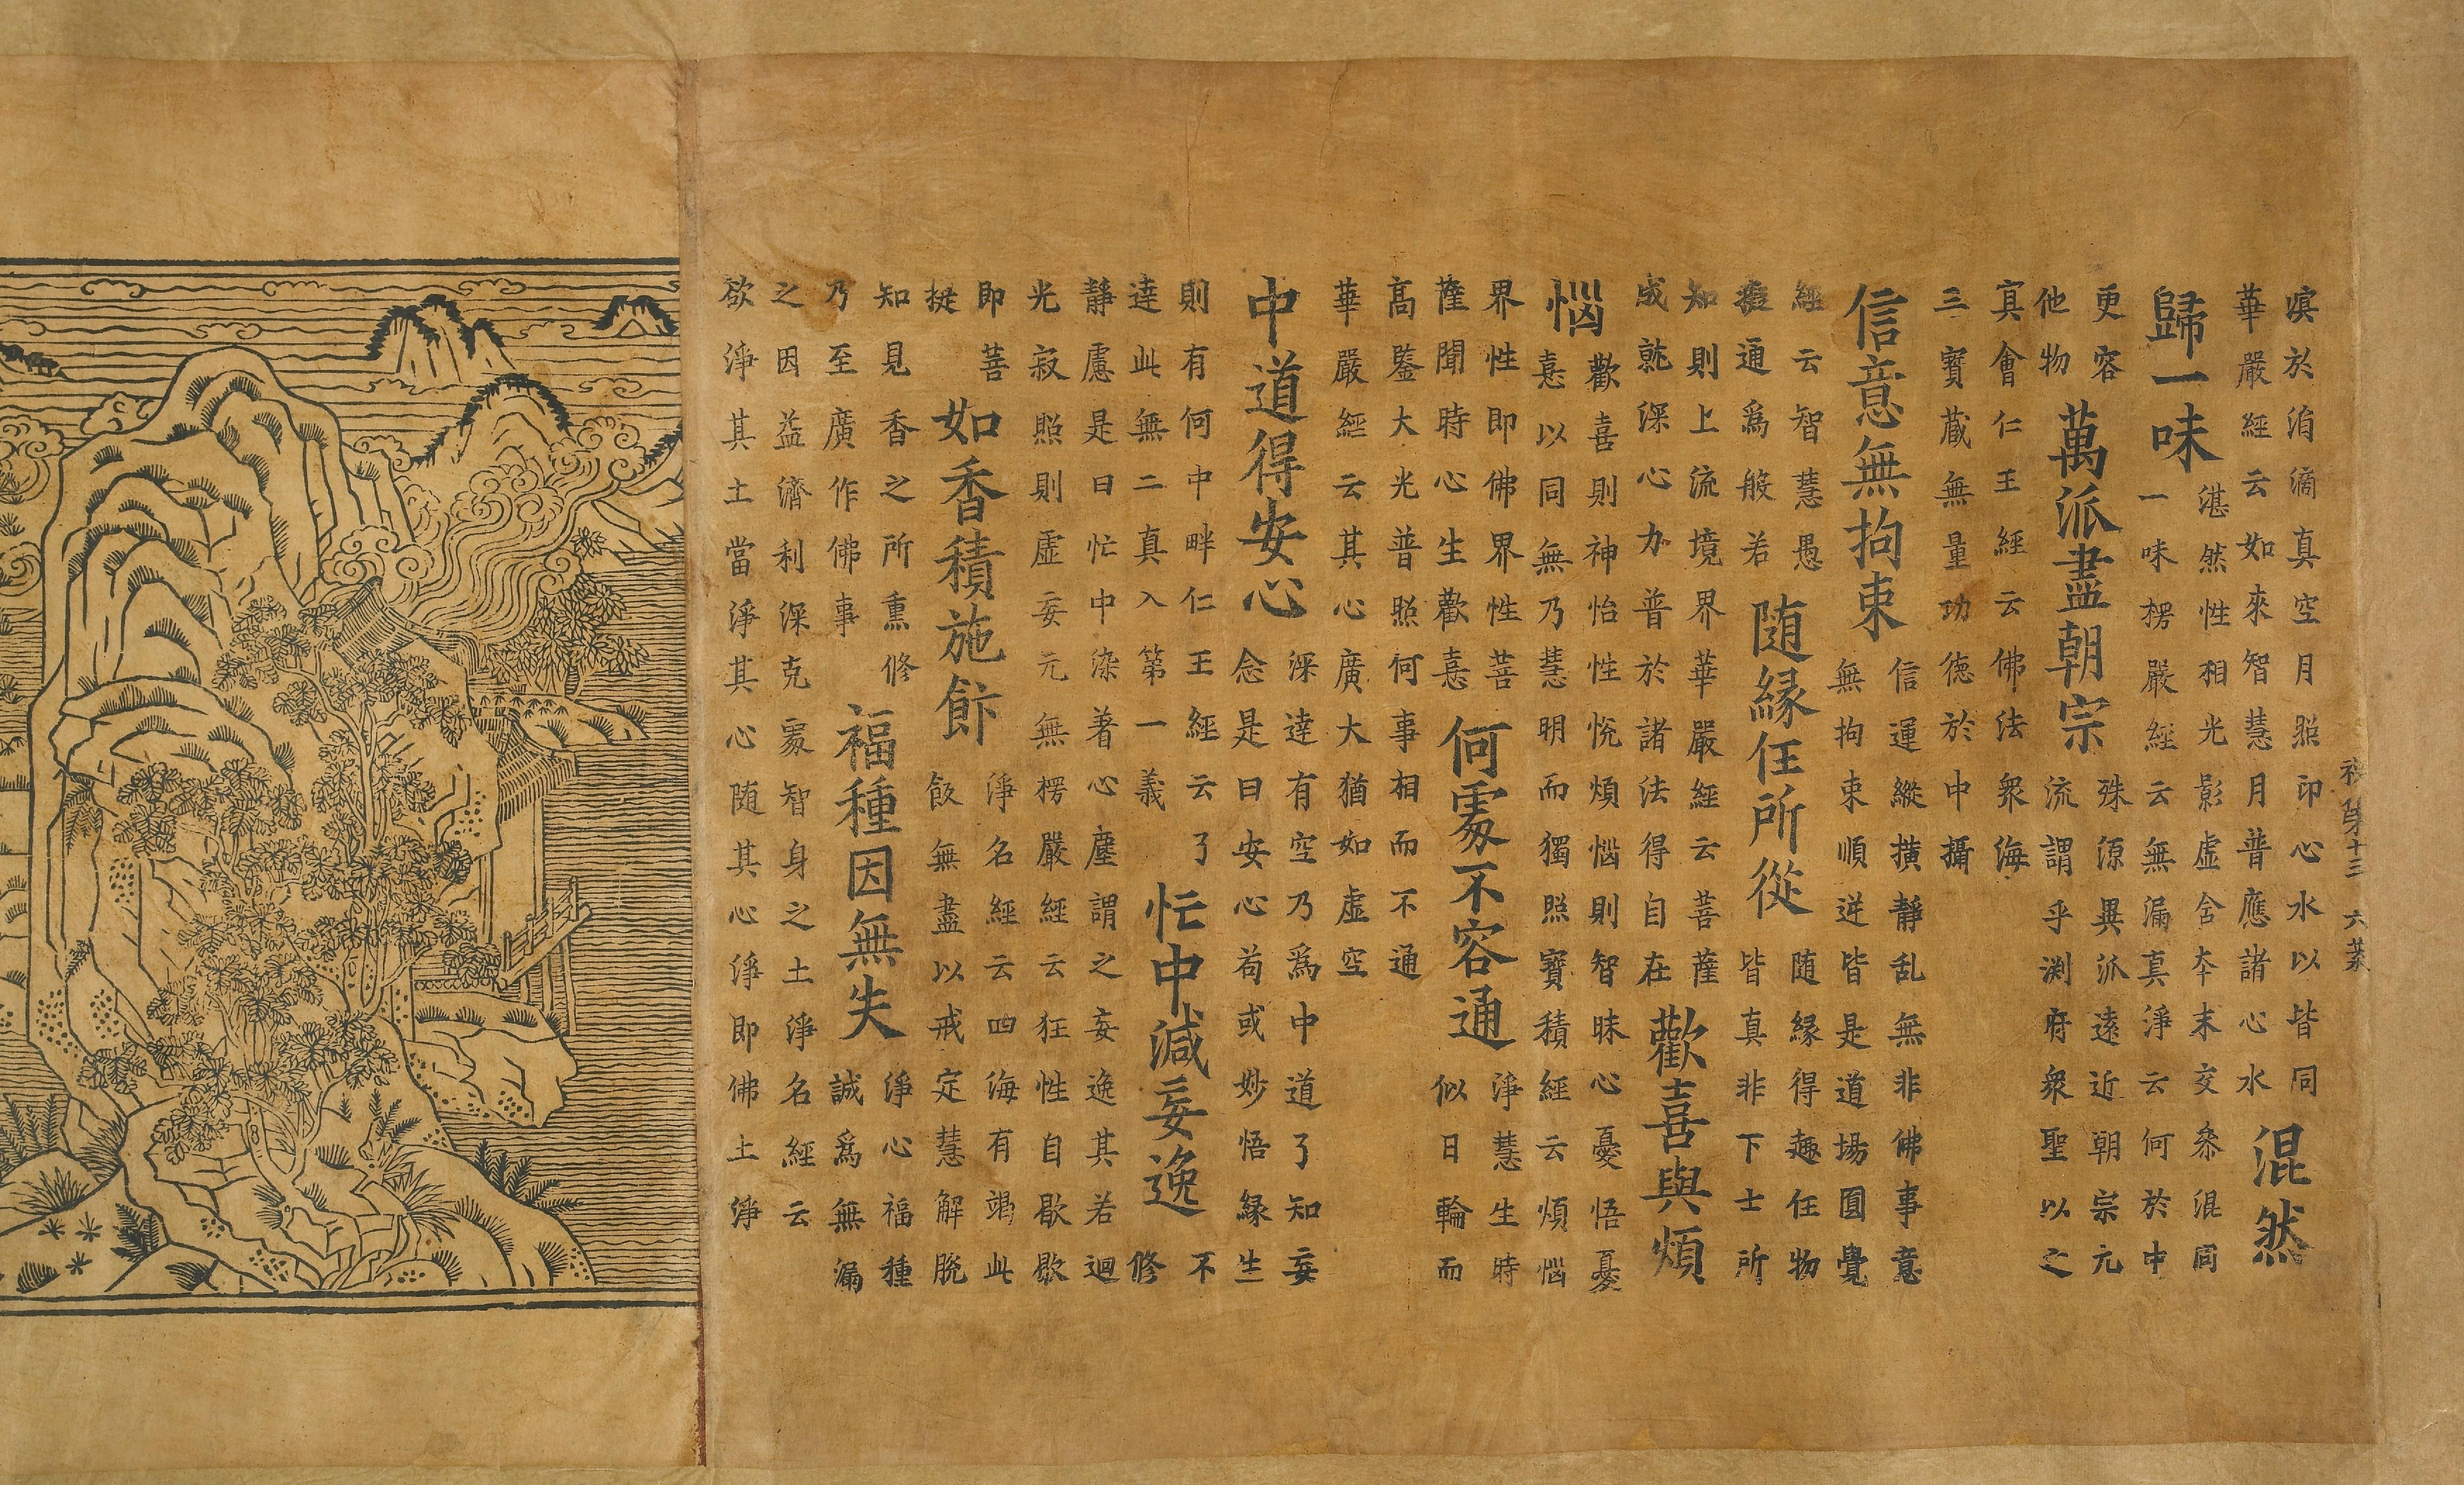 溟於涓滴真空月照印心水以皆同
華嚴經云如來智慧月普應諸心水
混然
歸一味
湛然性相光影虛含本末交叅混同
一味楞嚴經云無漏真淨云何於中
更容
他物
萬派盡朝宗
殊源異派遠近朝宗元
流謂乎渊府衆聖以之
㝠會仁王經云佛法衆海
三寶藏無量功德於中攝
信意無拘束
信運縱橫靜乱無非佛事意
無拘束順逆皆是道場圓覺
經云智慧愚
癡通爲般若
随緣任所從
随緣得趣任物
皆真非下士所
知則上流境界華嚴經云菩薩
成就深心力普於諸法得自在
歡喜與煩
惱
歡喜則神怡性悅煩惱則智昧心憂悟憂
憙以同無乃慧明而獨照寶積經云煩惱
界性即佛界性菩
薩聞時心生歡憙
何處不容通
淨慧生時
似日輪而
高鑒大光普照何事相而不通
華嚴經云其心廣大猶如虛空
中道得安心
深達有空乃爲中道了知妄
念是曰安心苟或妙悟緣生
則有何中畔仁王經云了
達此無二真入第一義
忙中減妄逸
不
修
靜慮是曰忙中染著心塵謂之妄逸其若迴
光寂照則虛妄元無楞嚴經云狂性自歇歇
即菩
提
如香積施飰
淨名經云四海有竭此
飯無盡以戒定慧解脫
知見香之所熏修
乃至廣作佛事
福種因無失
淨心福種
誠爲無漏
之因益濟利深克處智身之土淨名經云
欲淨其土當淨其心随其心淨即佛土淨